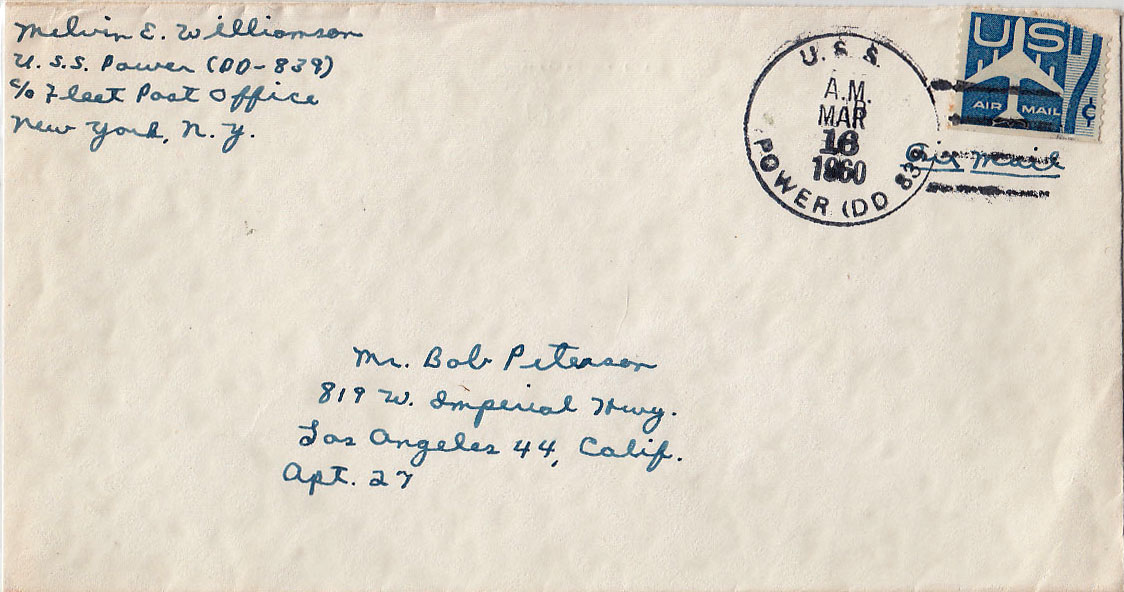 Melvin E. Williamson
U.S.S. Power (DD-839)
c/o Fleet Post Office
New York, N.Y.
U.S.S.
A.M.
MAR
16
1960
POWER (DD 839)
US
AIR MAIL
7¢
Air Mail
Mr. Bob Peterson
819 W. Imperial Hwy.
Los Angeles 44, Calif.
Apt. 27